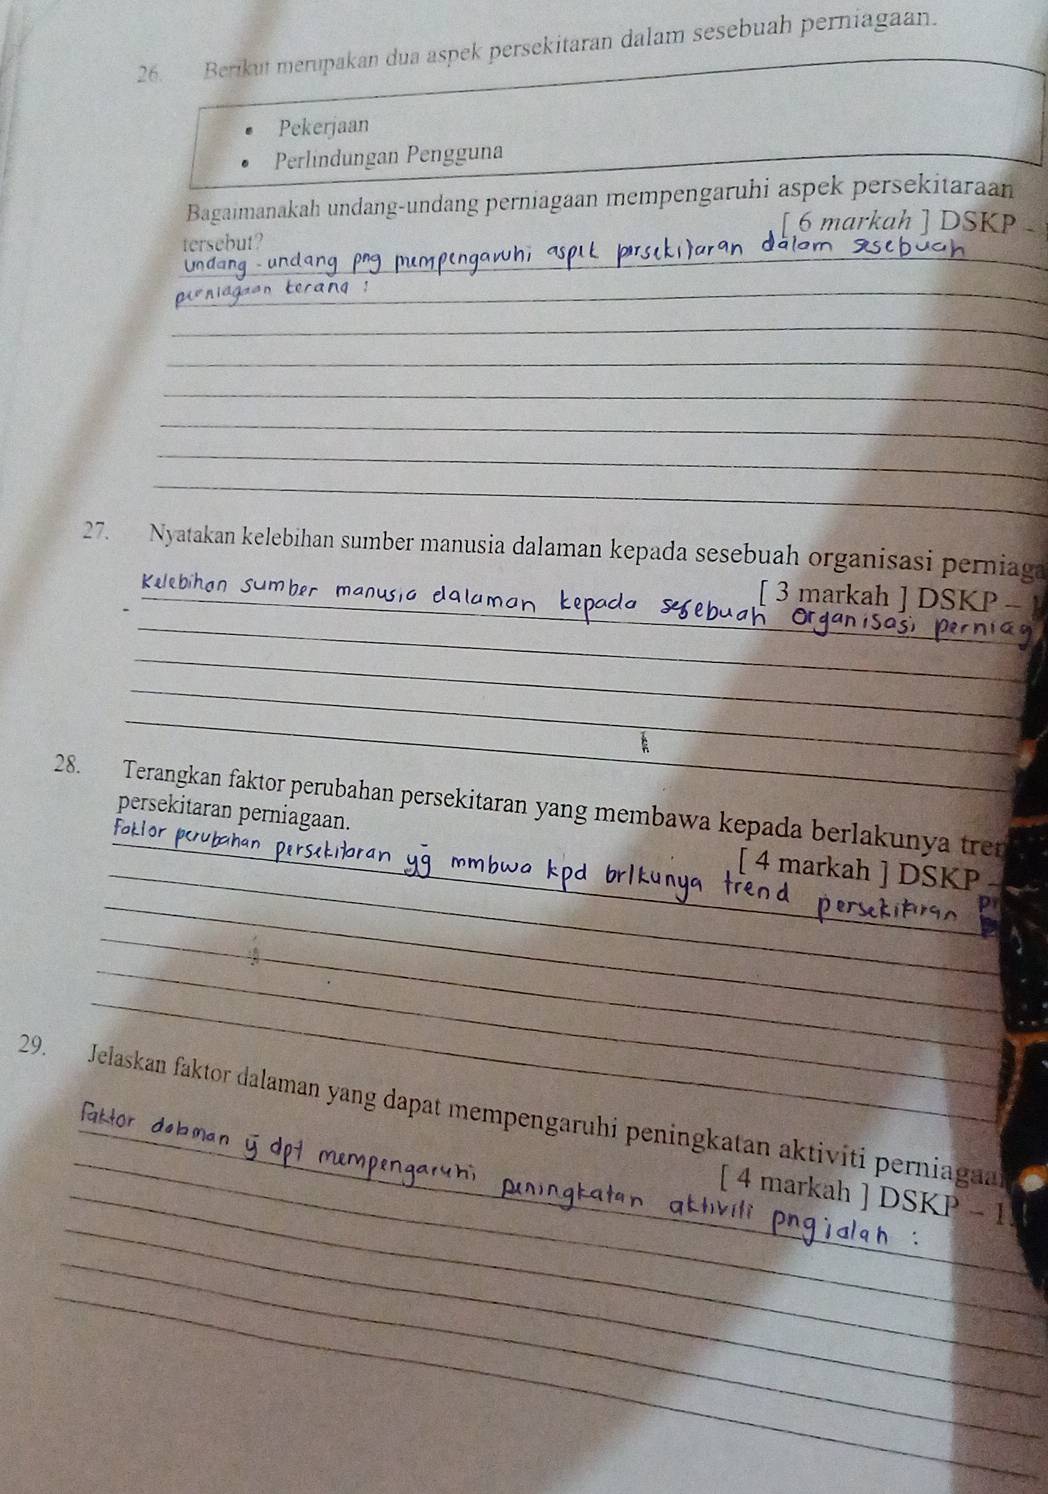 26. Berikut merupakan dua aspek persekitaran dalam sesebuah perniagaan.
• Pekerjaan
• Perlindungan Pengguna
Bagaimanakah undang-undang perniagaan mempengaruhi aspek persekitaraan
tersebut? [ 6 markah ] DSKP -
undang-undang png mempengaruhi aspek persekitaran dalam sesebuah
perniagaan terang :
27. Nyatakan kelebihan sumber manusia dalaman kepada sesebuah organisasi perniaga
[ 3 markah ] DSKP - 1
Kelebihan sumber manusia dalaman kepada sesebuah organisasi perniag
28. Terangkan faktor perubahan persekitaran yang membawa kepada berlakunya tren
persekitaran perniagaan. [ 4 markah ] DSKP -
Faktor perubahan persekitaran yg mmbwa kpd brlkunya trend persekitiran
29. Jelaskan faktor dalaman yang dapat mempengaruhi peningkatan aktiviti perniagaa
[ 4 markah ] DSKP - 1.
Faktor dalaman y dpt mempengaruhi peningkatan aktiviti png ialah :